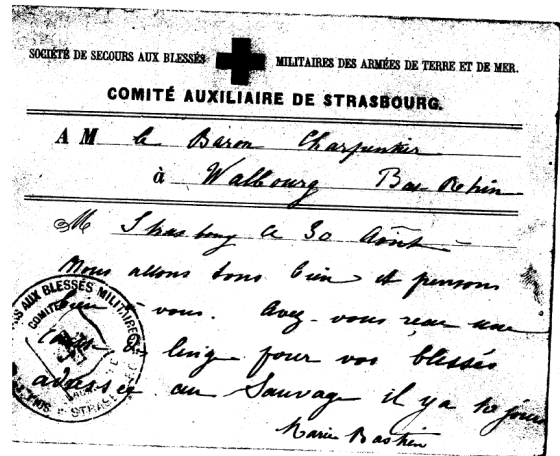 SOCIÉTÉ DE SECOURS AUX BLESSÉS MILITAIRES DES ARMÉES DE TERRE ET DE MER.
COMITÉ AUXILIAIRE DE STRASBOURG.
A M le Baron Charpentier
à Walbourg Bas Rhin
M Strasbourg le 30 Août
Nous allons tous bien et pensons
bien à vous. Avez-vous reçu une
de linge pour vos blessés
adressée au Sauvage il y a 10 jours
Marie Bastien
AUX BLESSÉS MILITAIRES
COMITÉ
STRASBOURG